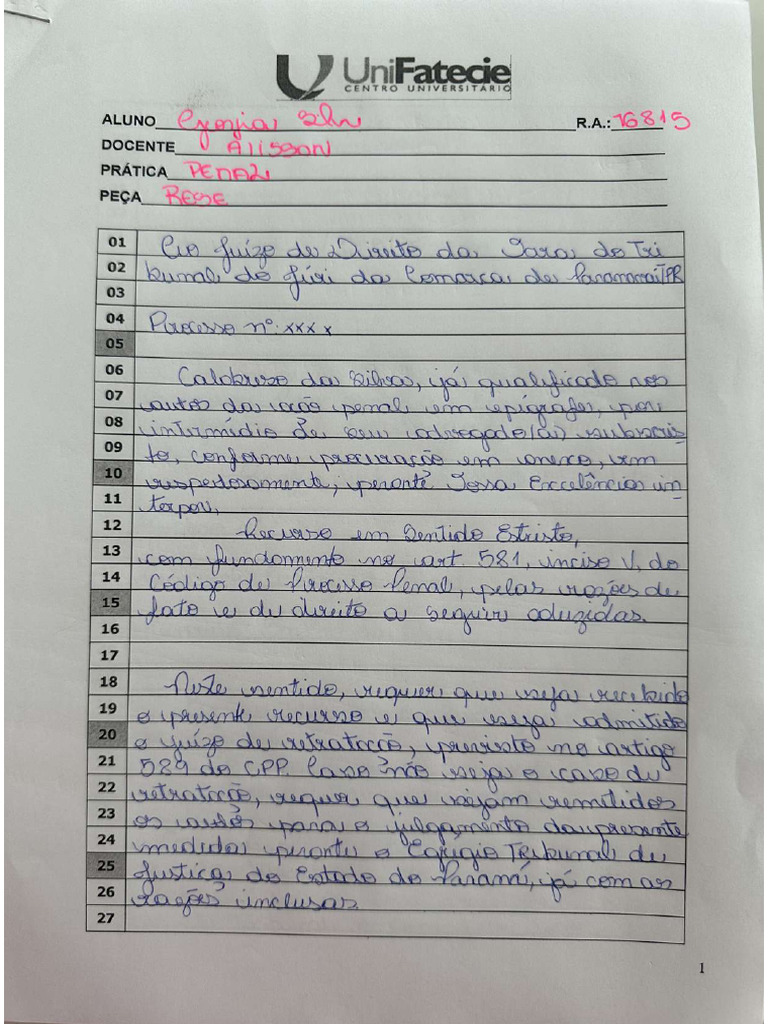 UniFatecie
CENTRO UNIVERSITÁRIO
ALUNO R.A.: 76815
DOCENTE Alisson
PRÁTICA PENAL
PEÇA RESE
01 Ao Juízo de Direito da Vara do Tri
02 bunal do Júri da Comarca de Paranavaí/PR
03
04 Processo nº: xxxx
05
06 Calabreso da Silva, já qualificado nos
07 autos da ação penal em epígrafe, por
08 intermédio de seu advogado(a) subscris
09 to, conforme procuração em anexo, vem
10 respeitosamente, perante Vossa Excelência in
11 terpor,
12 Recurso em Sentido Estristo,
13 com fundamento no art. 581, inciso V, do
14 Código de Processo Penal, pelas razões de
15 fato e de direito a seguir aduzidas.
16
17
18 Neste sentido, requer que seja recebido
19 o presente recurso e que seja admitido
20 o juízo de retratação, previsto no artigo
21 589 do CPP. Caso não seja o caso de
22 retratação, requer que sejam remitidos
23 os autos para o julgamento da presente
24 medida perante o Egrégio Tribunal de
25 Justiça do Estado do Paraná, já com as
26 razões inclusas
27
1